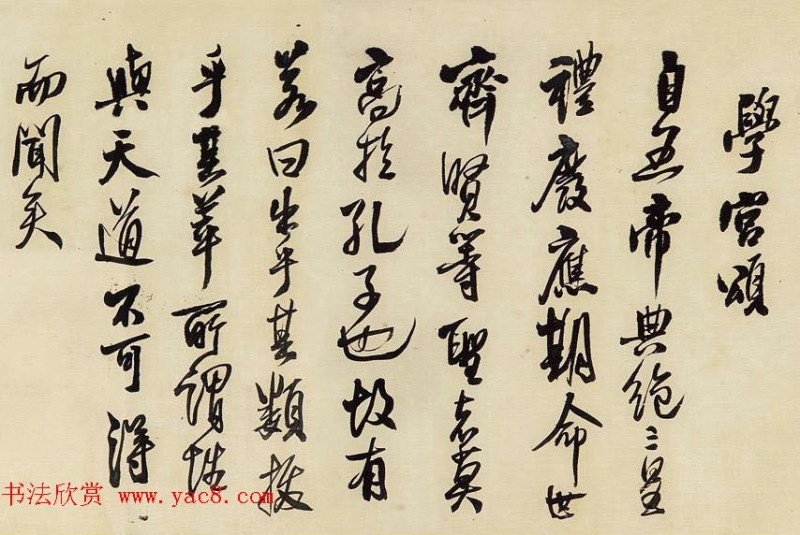 學宮頌
自五帝典絶三皇
禮廢應期命世
齊賢等聖者莫
高於孔子也故有
若曰出乎其類拔
乎其萃所謂性
與天道不可得
而聞矣
书法欣赏 www.yac8.com